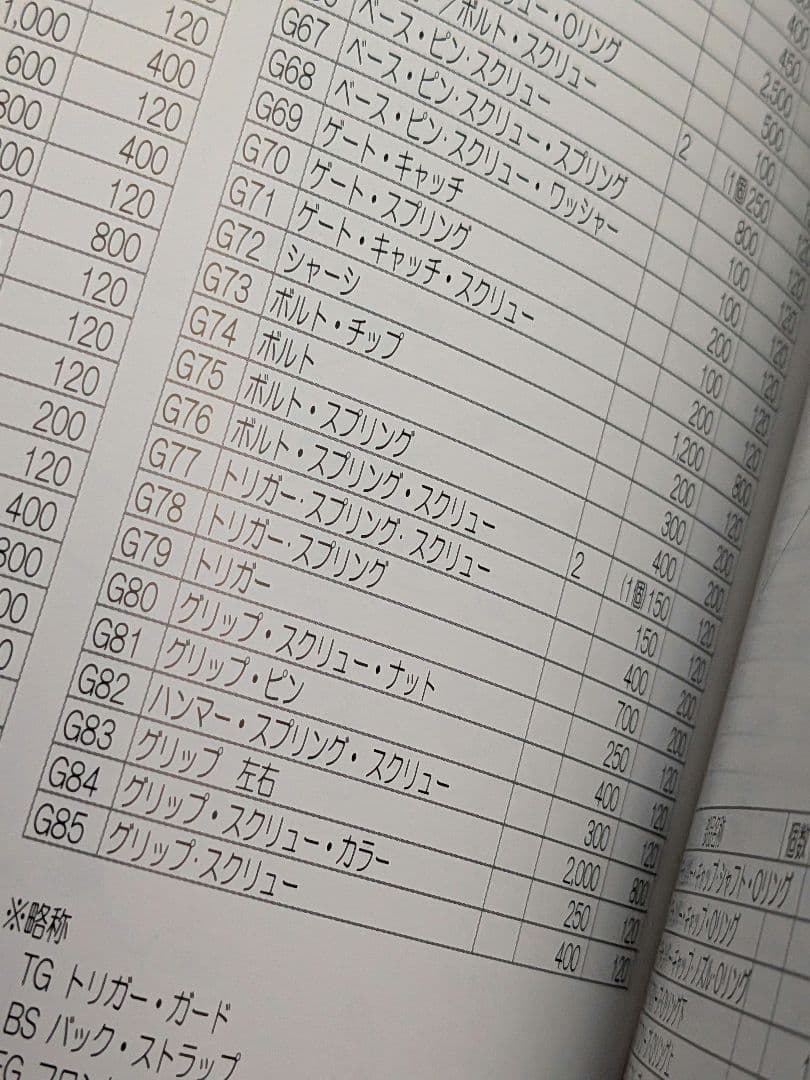 1,000 120
600 400
120
400
120
800
120
120
120
200
120
400
・Oリング 400
ボルト・スクリュー 450
ベース・ピン・スクリュー 800
G67 ベース・ピン・スクリュー・スプリング 100
G68 ベース・ピン・スクリュー・ワッシャー 100 120
G69 ゲート・キャッチ 200 120
G70 ゲート・スプリング 100 120
G71 ゲート・キャッチ・スクリュー 200 120
G72 シャーシ 1,200 800
G73 ボルト・チップ 200 120
G74 ボルト 300 200
G75 ボルト・スプリング 400 200
G76 ボルト・スプリング・スクリュー 2 (1個)150 120
G77 トリガー・スプリング・スクリュー 150 120
G78 トリガー・スプリング 400 200
G79 トリガー 700 200
G80 グリップ・スクリュー・ナット 250 120
G81 グリップ・ピン 400 120
G82 ハンマー・スプリング・スクリュー 300 120
G83 グリップ 左右 2,000 800
G84 グリップ・スクリュー・カラー 250 120
G85 グリップ・スクリュー 400 120
※略称
TG トリガー・ガード
BS バック・ストラップ
部品名称 個数
キャップ・シャフト・Oリング
キャップ・Oリング
キャップ・ノズル・Oリング